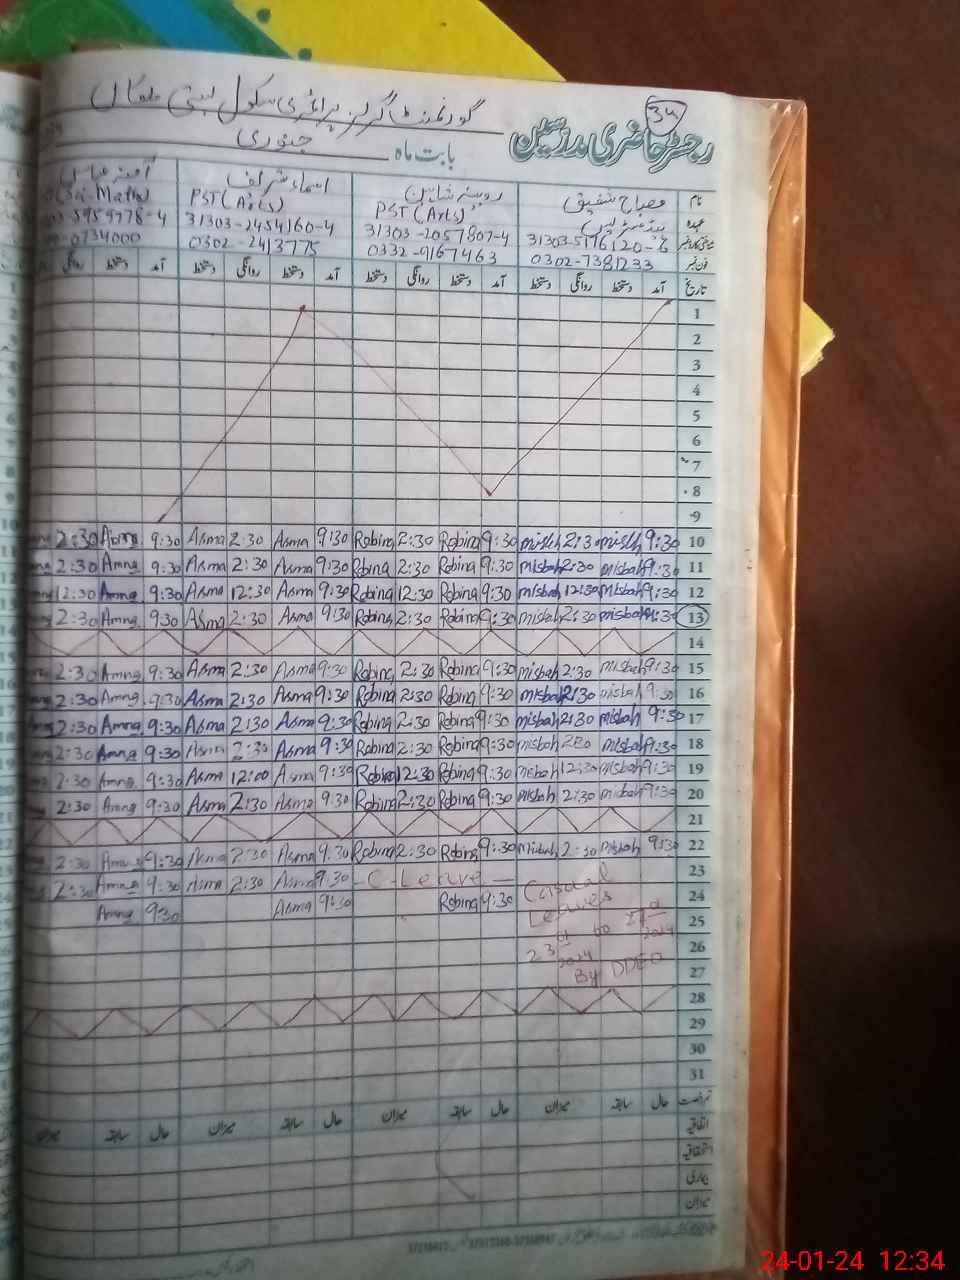 34
گورنمنٹ گرلز پرائمری سکول بستی
رجسٹر حاضری مدرسین
بابت ماہ جنوری
نام مصباح شفیق روبینہ شاہین اسماء شریف آمنہ عباس
عہدہ ہیڈ مسٹریس PST (Arts) PST (Arts) (Sci-Math)
31303-5176120- 31303-2057807-4 31303-2454160-4 5959778-4
فون نمبر 0302-7381233 0332-9167463 0302-2413775 0734000
تاریخ آمد دستخط روانگی دستخط آمد دستخط روانگی دستخط آمد دستخط روانگی دستخط آمد دستخط روانگی
1
2
3
4
5
6
7
8
9
2:30 Amna 9:30 Asma 2:30 Asma 9:30 Robina 2:30 Robina 9:30 misbah 2:30 misbah 9:30 10
2:30 Amna 9:30 Asma 2:30 Asma 9:30 Robina 2:30 Robina 9:30 misbah 2:30 misbah 9:30 11
12:30 Amna 9:30 Asma 12:30 Asma 9:30 Robina 12:30 Robina 9:30 misbah 12:30 misbah 9:30 12
2:30 Amna 9:30 Asma 2:30 Asma 9:30 Robina 2:30 Robina 9:30 misbah 2:30 misbah 9:30 13
14
2:30 Amna 9:30 Asma 2:30 Asma 9:30 Robina 2:30 Robina 9:30 misbah 2:30 misbah 9:30 15
2:30 Amna 9:30 Asma 2:30 Asma 9:30 Robina 2:30 Robina 9:30 misbah 2:30 misbah 9:30 16
2:30 Amna 9:30 Asma 2:30 Asma 9:30 Robina 2:30 Robina 9:30 misbah 2:30 misbah 9:30 17
2:30 Amna 9:30 Asma 2:30 Asma 9:30 Robina 2:30 Robina 9:30 misbah 2:30 misbah 9:30 18
2:30 Amna 9:30 Asma 12:00 Asma 9:30 Robina 12:30 Robina 9:30 misbah 12:30 misbah 9:30 19
2:30 Amna 9:30 Asma 2:30 Asma 9:30 Robina 2:30 Robina 9:30 misbah 2:30 misbah 9:30 20
21
2:30 Amna 9:30 Asma 2:30 Asma 9:30 Robina 2:30 Robina 9:30 misbah 2:30 misbah 9:30 22
2:30 Amna 9:30 Asma 2:30 Asma 9:30 - C - Leave - Casual 23
Amna 9:30 Asma 9:30 Robina 9:30 Leaves 24
23 01 2024 to 27 01 2024 25
26
By DDEO 27
28
29
30
31
حال سابقہ میزان حال سابقہ میزان حال سابقہ میزان حال سابقہ میزان
اتفاقیہ
استحقاقیہ
بیماری
میزان
24-01-24 12:34